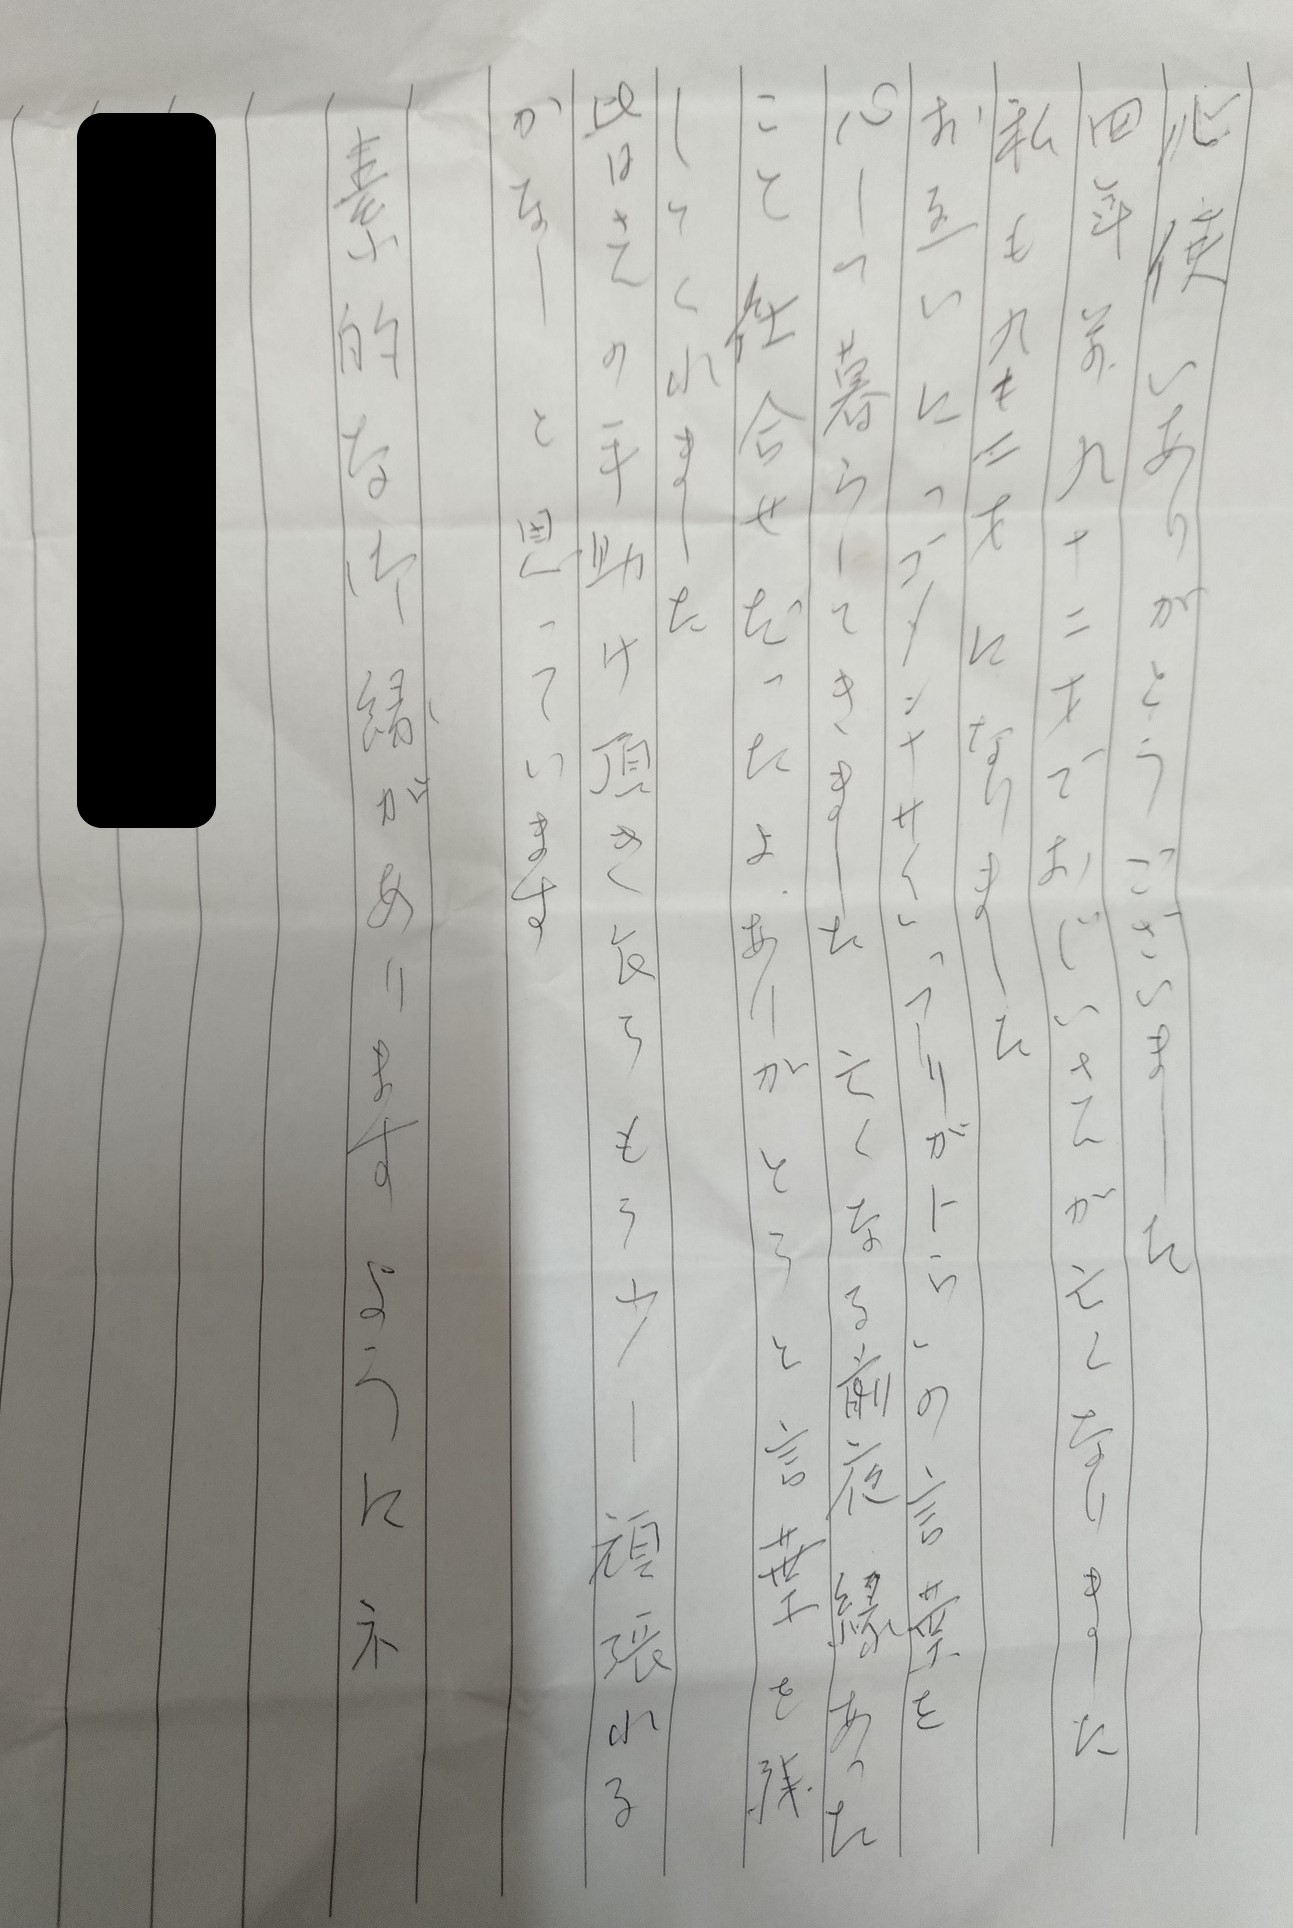 心使いありがとうございました
四年前九十二才でおじいさんが亡くなりました
私も九も三才になりました
お互いに「ゴメンナサイ」「アリガトウ」の言葉を
心して暮らしてきました 亡くなる前夜 縁あった
こと仕合せだったよ、ありがとうと言葉を残
してくれました
皆さんの手助け頂き乍らもう少し頑張れる
かなーと思っています
素的な御縁がありますようにネ